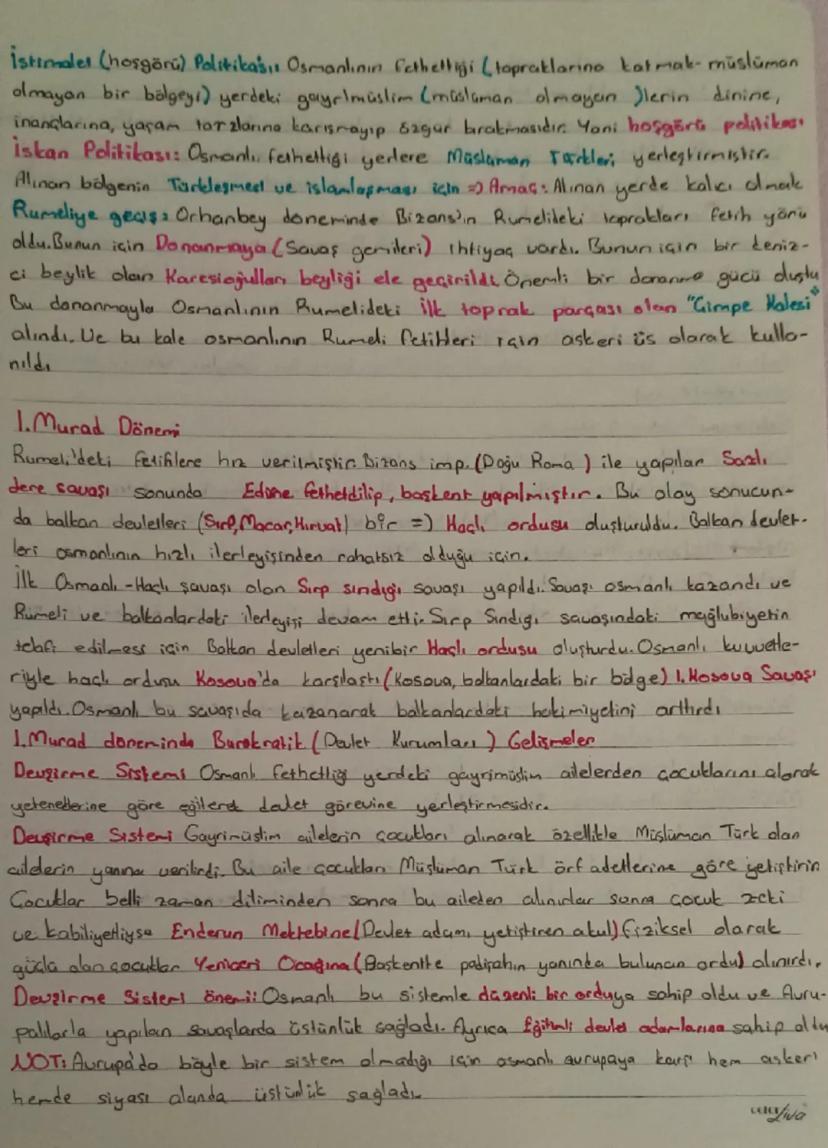 İstimalet (hoşgörü) Politikası: Osmanlının fethettiği (topraklarına katmak-müslüman
olmayan bir bölgeyi) yerdeki gayrimüslim (müslüman olmayan)lerin dinine,
inançlarına, yaşam tarzlarına karışmayıp özgür bırakmasıdır. Yani hoşgörü politikası
İskan Politikası: Osmanlı fethettiği yerlere Müslüman Türkleri yerleştirmiştir.
Alınan bölgenin Türkleşmesi ve islamlaşması için => Amaç: Alınan yerde kalıcı olmak
Rumeliye geçiş: Orhanbey döneminde Bizans'ın Rumelideki toprakları fetih yönü
oldu. Bunun için Donanmaya (Savaş gemileri) ihtiyaç vardı. Bunun için bir deniz-
ci beylik olan Karesioğulları beyliği ele geçirildi. Önemli bir donanma gücü oluştu
Bu donanmayla Osmanlının Rumelideki ilk toprak parçası olan "Çimpe Kalesi"
alındı. Ve bu kale osmanlının Rumeli fetihleri için askeri üs olarak kulla-
nıldı
I. Murad Dönemi
Rumeli'deki fetihlere hız verilmiştir. Bizans imp. (Doğu Roma) ile yapılan Sazlı
dere savaşı sonunda Edirne fethedilip, başkent yapılmıştır. Bu olay sonucun-
da balkan devletleri (Sırp, Macar, Hırvat) bir => Haçlı ordusu oluşturuldu. Balkan devlet-
leri osmanlının hızlı ilerleyişinden rahatsız olduğu için.
İlk Osmanlı-Haçlı savaşı olan Sırp sındığı savaşı yapıldı. Savaşı osmanlı kazandı ve
Rumeli ve balkanlardaki ilerleyişi devam etti. Sırp Sındığı savaşındaki mağlubiyetin
telafi edilmesi için Balkan devletleri yenibir Haçlı ordusu oluşturdu. Osmanlı kuvvetle-
riyle haçlı ordusu Kosova'da karşılaştı (Kosova, balkanlardaki bir bölge) I. Kosova Savaşı
yapıldı. Osmanlı bu savaşıda kazanarak balkanlardaki hakimiyetini arttırdı
I. Murad döneminde Bürokratik (Devlet Kurumları) Gelişmeler
Devşirme Sistemi Osmanlı fethettiği yerdeki gayrimüslim ailelerden çocuklarını alarak
yeteneklerine göre eğiterek devlet görevine yerleştirmesidir.
Devşirme Sistemi Gayrimüslim ailelerin çocukları alınarak özellikle Müslüman Türk olan
ailelerin yanına verilirdi. Bu aile çocukları Müslüman Türk örf adetlerine göre yetiştirir
Çocuklar belli zaman diliminden sonra bu aileden alınırlar sonra çocuk zeki
ve kabiliyetliyse Enderun Mektebine (Devlet adamı yetiştiren okul) fiziksel olarak
güçlü olan çocuklar Yeniçeri Ocağına (Başkentte padişahın yanında bulunan ordu) alınırdı.
Devşirme Sistemi önemi: Osmanlı bu sistemle düzenli bir orduya sahip oldu ve Avru-
palılarla yapılan savaşlarda üstünlük sağladı. Ayrıca Eğitimli devlet adamlarına sahip oldu
NOT: Avrupa'da böyle bir sistem olmadığı için osmanlı avrupaya karşı hem askeri
hemde siyasi alanda üstünlük sağladı.